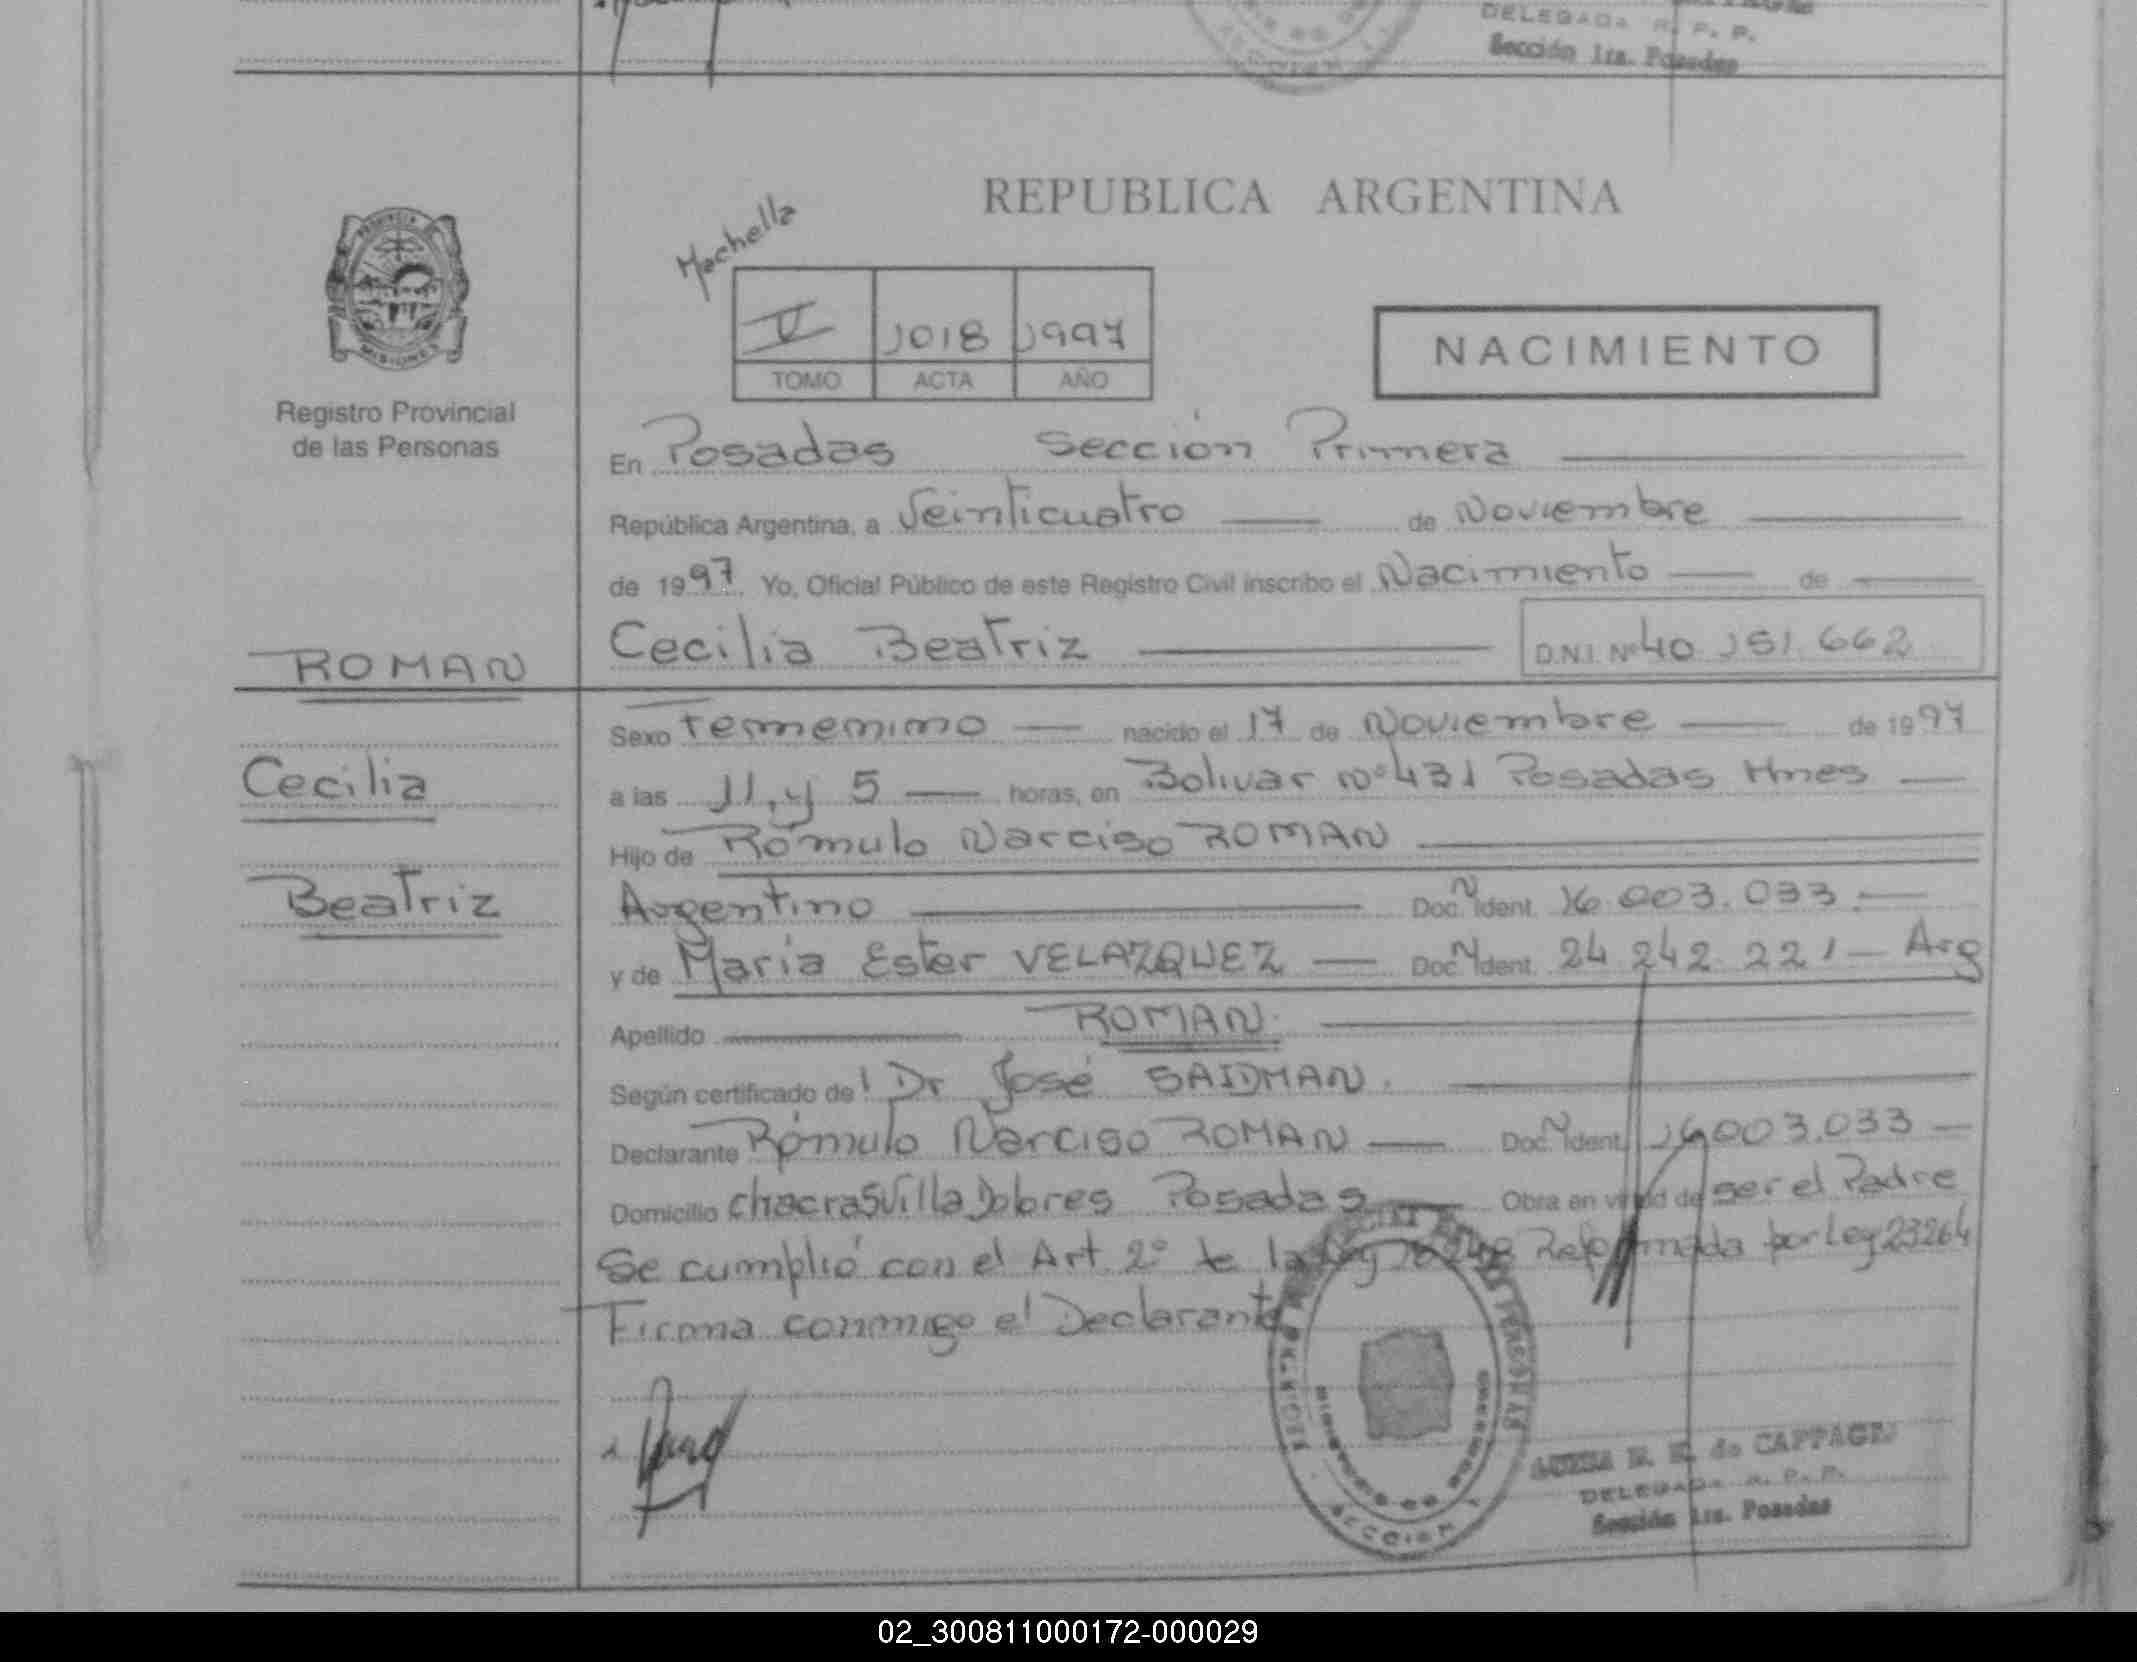 DELEGADA R. P. P.
Sección 1ra. Posadas
REPUBLICA ARGENTINA
Mochella
V 1018 1997
TOMO ACTA AÑO
NACIMIENTO
PROVINCIA
MISIONES
Registro Provincial
de las Personas
En Posadas Sección Primera
República Argentina, a Veinticuatro de Noviembre
de 1997. Yo, Oficial Público de este Registro Civil inscribo el Nacimiento de
ROMAN
Cecilia Beatriz D.N.I. Nº 40 151.662
Sexo Femenino nacido el 17 de Noviembre de 1997
Cecilia
a las 11, y 5 horas, en Bolivar nº 431 Posadas Mnes
Hijo de Rómulo Narciso ROMAN
Beatriz
Argentino Doc. N Ident. 16.003.033.
y de Maria Ester VELAZQUEZ Doc. N Ident. 24 242 221 Arg
Apellido ROMAN
Según certificado del Dr José SAIDMAN.
Declarante Rómulo Narciso ROMAN Doc. N Ident. 16003.033
Domicilio chacras Villa Dolores Posadas Obra en virtud de ser el Padre
Se cumplió con el Art 2º de la Ley Reformada por Ley 23264
Firma conmigo el Declarante
PERSONAS
SECCION 1
de CAPPAGLI
DELEGADA R. P. P.
Sección 1ra. Posadas
02_300811000172-000029